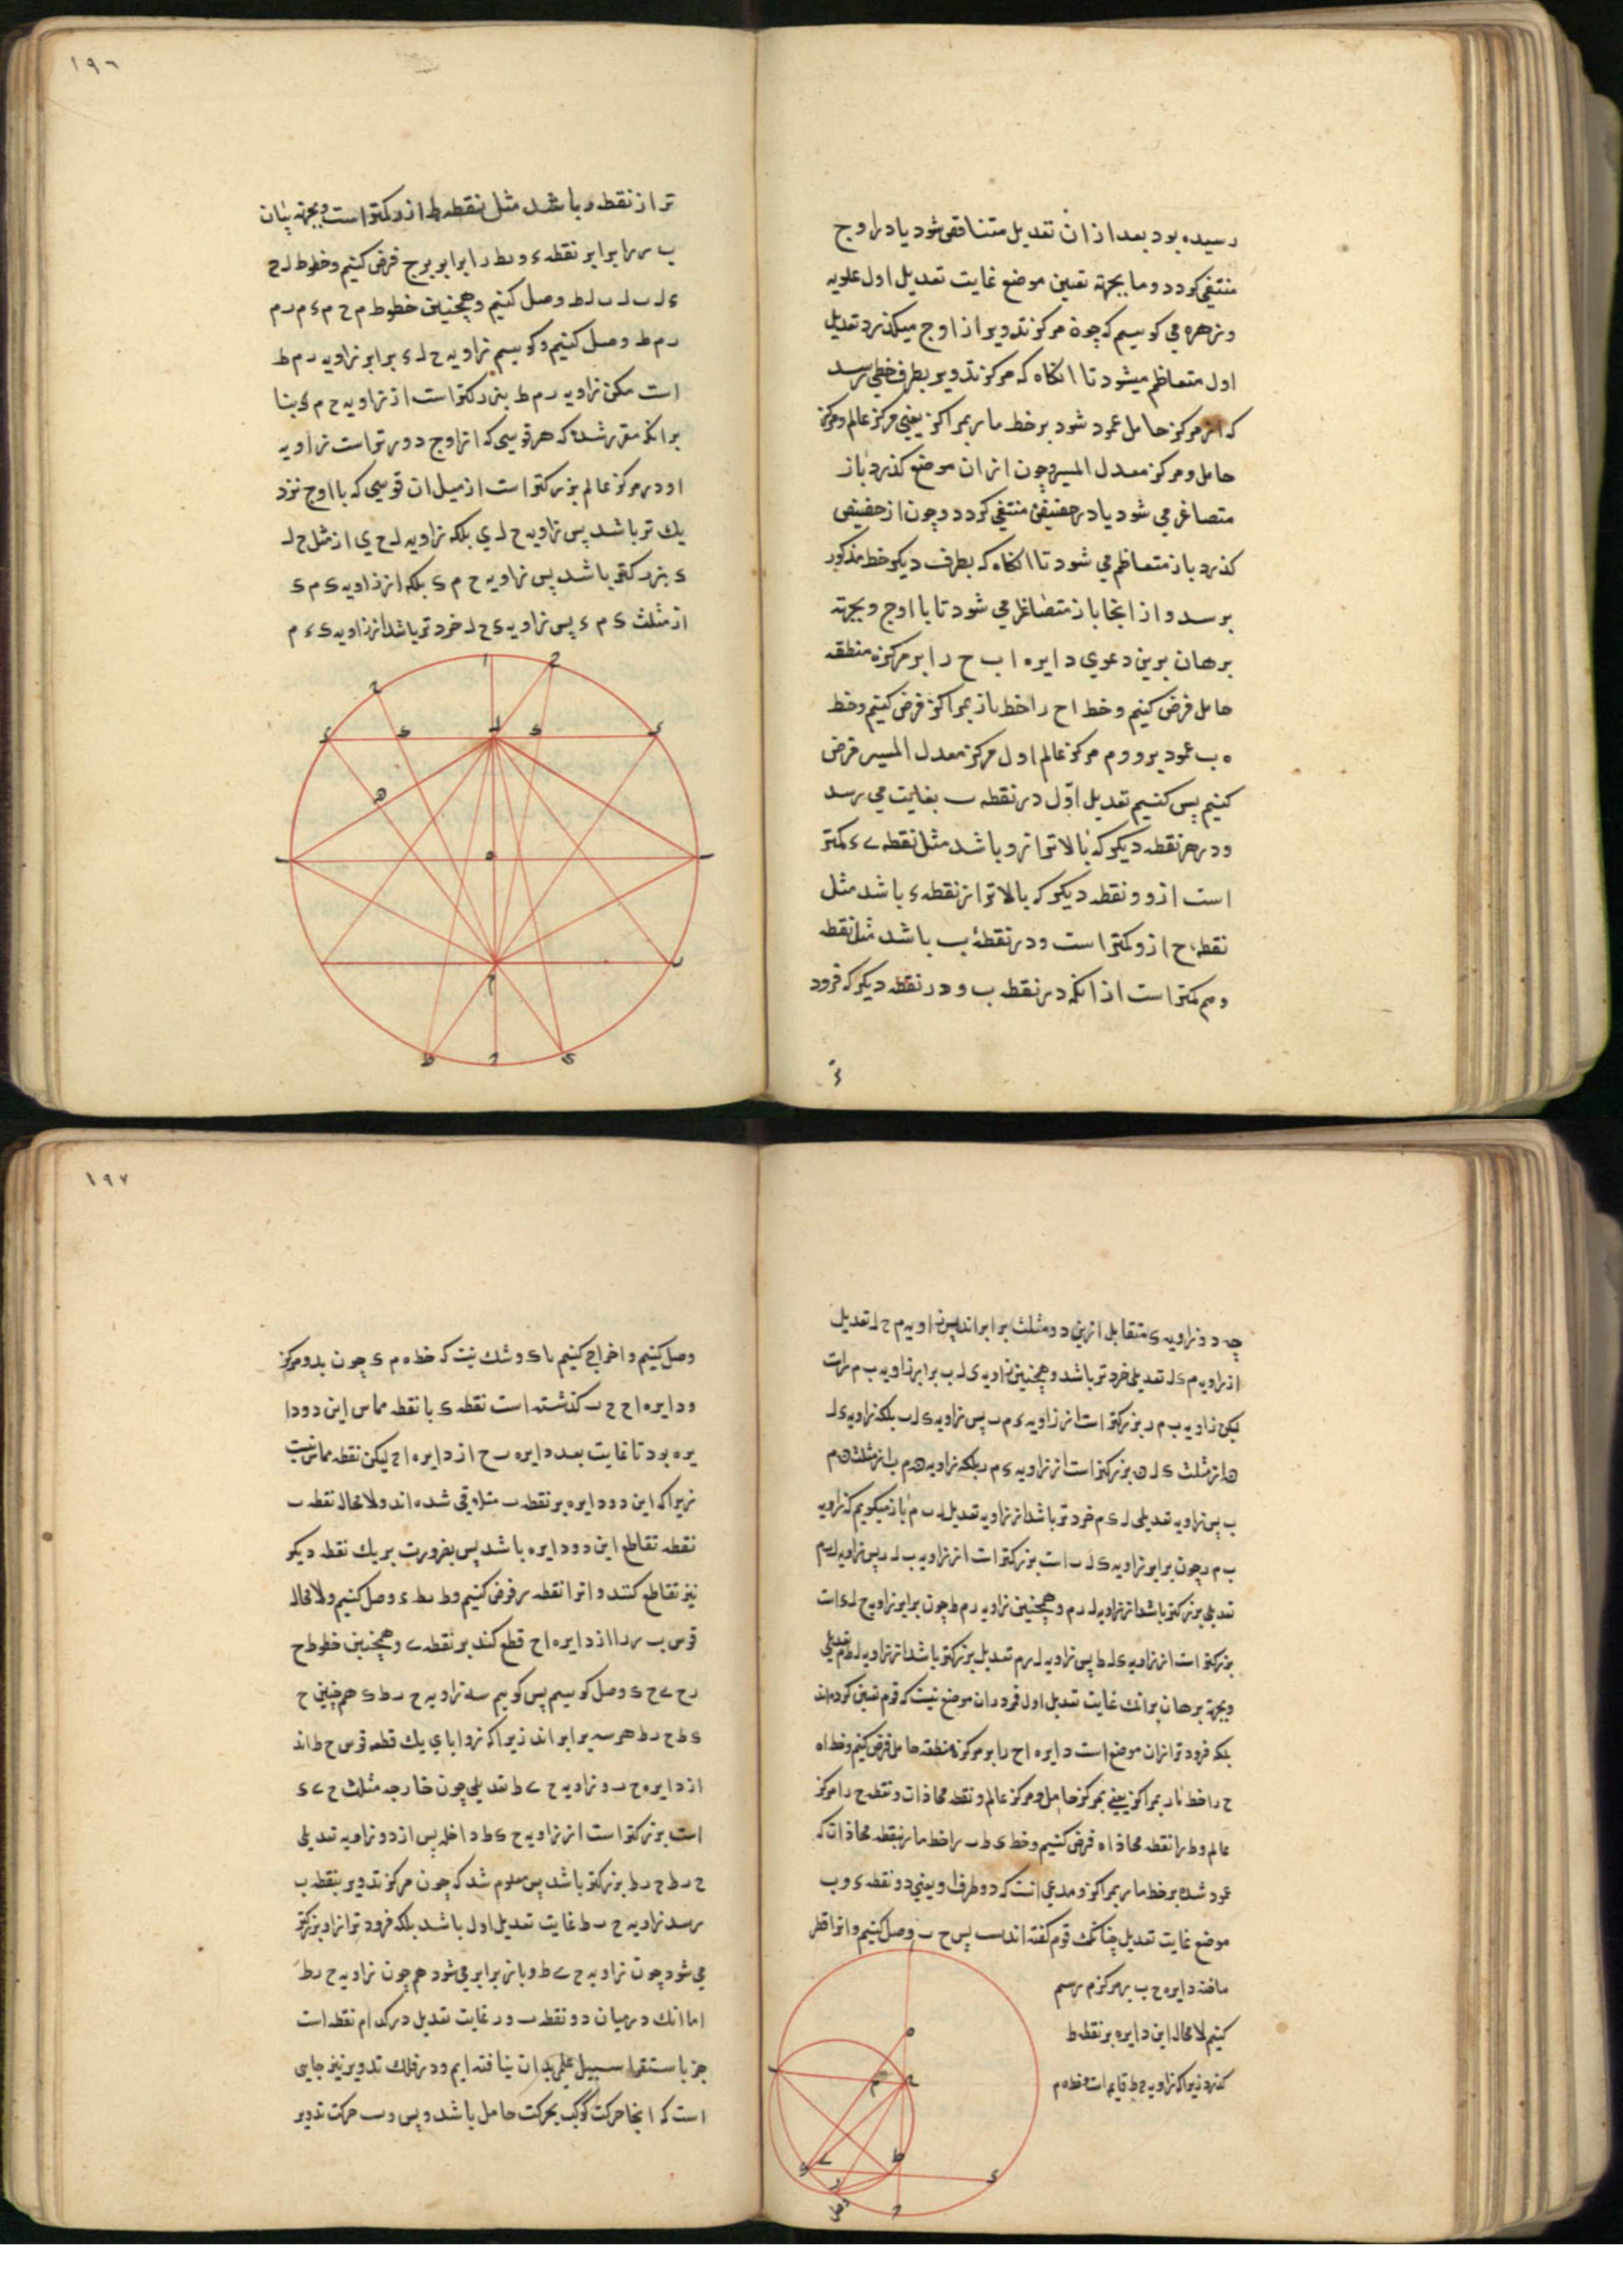 رسیده بود بعد از ان تعدیل متناقص شود یا در اوج
منتفی کردد و ما بجهته تعیین موضع غایت تعدیل اول علویه
و زهره می کوییم که چون مرکز تدویر از اوج میکذرد تعدیل
اول متعاظم میشود تا انکاه که مرکز تدویر بطرف خطی رسد
که از مرکز حامل عمود شود بر خط مار بمراکز یعنی مرکز عالم و مرکز
حامل و مرکز معدل المسیر و چون از ان موضع کذرد باز
متصاغر می شود یا در حضیض منتفی کردد و چون از حضیض
کذرد باز متعاظم می شود تا انکاه که بطرف دیکر خط مذکور
برسد و از انجا باز متصاغر می شود تا با اوج و بجهته
برهان برین دعوی دایره ا ب ح را بر مرکز ه منطقه
حامل فرض کنیم و خط ا ح را خط مار بمراکز فرض کنیم و خط
ه ب عمود برو و م مرکز عالم و ل مرکز معدل المسیر فرض
کنیم پس کنیم تعدیل اول در نقطه ب بغایت می رسد
و در هر نقطه دیکر که بالاتر از و باشد مثل نقطه ء کمتر
است ازو و نقطه دیکر که بالاتر از نقطه ء باشد مثل
نقطه ح ازو کمتر است و در نقطه ب باشد مثل نقطه
و هم کمتر است از انکه در نقطه ب و در نقطه دیکر که فرود
١٩٦
تر از نقطه ر باشد مثل نقطه ط ازو کمتر است و بجهته بیان
ب ر را برابر نقطه ء و رط را برابر برج فرض کنیم و خطوط ل ح
ء ل ب ل ر ل ط وصل کنیم و همچنین خطوط م ح م ء م ر م
ر م ط وصل کنیم و کوییم زاویه ح ل ء برابر زاویه ر م ط
است مکن زاویه ر م ط بزرکتر است از زاویه ح م ء بنا
بر انکه مقرر شده که هر قوسی که از اوج دورتر است زاویه
او در مرکز عالم بزرکتر است از میل ان قوسی که با اوج نزد
یك تر باشد پس زاویه ح ل ی بلکه زاویه ل ح ی از مثل ح ل
ء بزرکتر باشد پس زاویه ح م ء بلکه از زاویه ء م ء
از مثلث ء م ء پس زاویه ء ح ل خردتر باشد از زاویه ء ء م
چه دو زاویه ء متقابل ازین دو مثلث برابر اند پس زاویه م ح ل تعدیل
از زاویه م ء ل تعدیلی خردتر باشد و همچنین زاویه ء ل ب برابر زاویه ب م ر است
لیکن زاویه ب م ر بزرکتر است از زاویه ء م ب پس زاویه ء ل ب بلکه زاویه ء ل
ه از مثلث ء ل ه بزرکتر است از زاویه ء م ب بلکه زاویه ه م ب از مثلث ه م
ب پس زاویه تعدیلی ل ء م خردتر باشد از زاویه تعدیل ل ب م باز میکوییم که زاویه
ب م ر چون برابر زاویه ء ل ب است بزرکتر است از زاویه ب ل ر پس زاویه ل ب م
تعدیلی بزرکتر باشد از زاویه ل ر م و همچنین زاویه ر م ط چون برابر زاویه ح ل ء است
بزرکتر است از زاویه ء ل ط پس زاویه ل ر م تعدیل بزرکتر باشد از زاویه ل ط م تعدیلی
و بجهته برهان بر انك غایت تعدیل اول فرود ر ان موضع نیست که قوم تعیین کرده اند
بلکه فرودتر از ان موضع است دایره ا ح را بر مرکز ه منطقه حامل فرض کنیم و خط ا ه
ح را خط مار بمراکز یعنی بمرکز حامل و مرکز عالم و نقطه محاذات و نقطه ح را مرکز
عالم و ط را نقطه محاذاه فرض کنیم و خط ی ط ب را خط مار بنقطه محاذات که
عمود شده بر خط مار بمراکز و مدعی انست که دو طرف او یعنی دو نقطه ء و ب
موضع غایت تعدیل چنانك قوم کفته اند پس ح ب وصل کنیم و انرا قطر
ساخته دایره ح ب بر مرکز م رسم
کنیم لامحاله این دایره بر نقطه ط
کذرد زیرا که زاویه ح ط قایم است و خط ه م
١٩٧
وصل کنیم و اخراج کنیم تا ء و شك نیست که خط ه م ء چون بدو مرکز
دو دایره ا ح ح ب کذشته است نقطه ء با نقطه مماس این دو دا
یره بود تا غایت بعد دایره ب ح از دایره ا ح لیکن نقطه مماس نیست
زیرا که این دو دایره بر نقطه ب متلاقی شده اند و لامحاله نقطه ب
نقطه تقاطع این دو دایره باشد پس بضرورت بر یك نقطه دیکر
نیز تقاطع کنند و انرا نقطه ر فرض کنیم و ط ر ط ء وصل کنیم و لامحاله
قوس ب ر را از دایره ا ح قطع کند بر نقطه ے و همچنین خطوط ح
ر ح ے ح ء وصل کوییم پس کوییم سه زاویه ح ر ط ء همچنین ح
ء ط ح ر ط هر سه برابر اند زیرا که زوایای یك قطعه قوس ح ط اند
از دایره ح ب و زاویه ح ے ط تعدیلی چون خارجه مثلث ح ے ء
است بزرکتر است از زاویه ح ء ط داخله پس از دو زاویه تعدیلی
ح ب ط ح ر ط بزرکتر باشد پس معلوم شد که چون مرکز تدویر بنقطه ب
رسد زاویه ح ب ط غایت تعدیل اول باشد بلکه فرودتر از او بزرکتر
می شود چون زاویه ح ے ط و باز برابر می شود هم چون زاویه ح ر ط
اما انك در میان دو نقطه ب و ر غایت تعدیل در کدام نقطه است
جز باستقرا سبیل علی بدان نیافته ایم و در فلك تدویر نیز جایی
است که انجا حرکت کوکب بحرکت حامل باشد و بس و ب حرکت تدویر